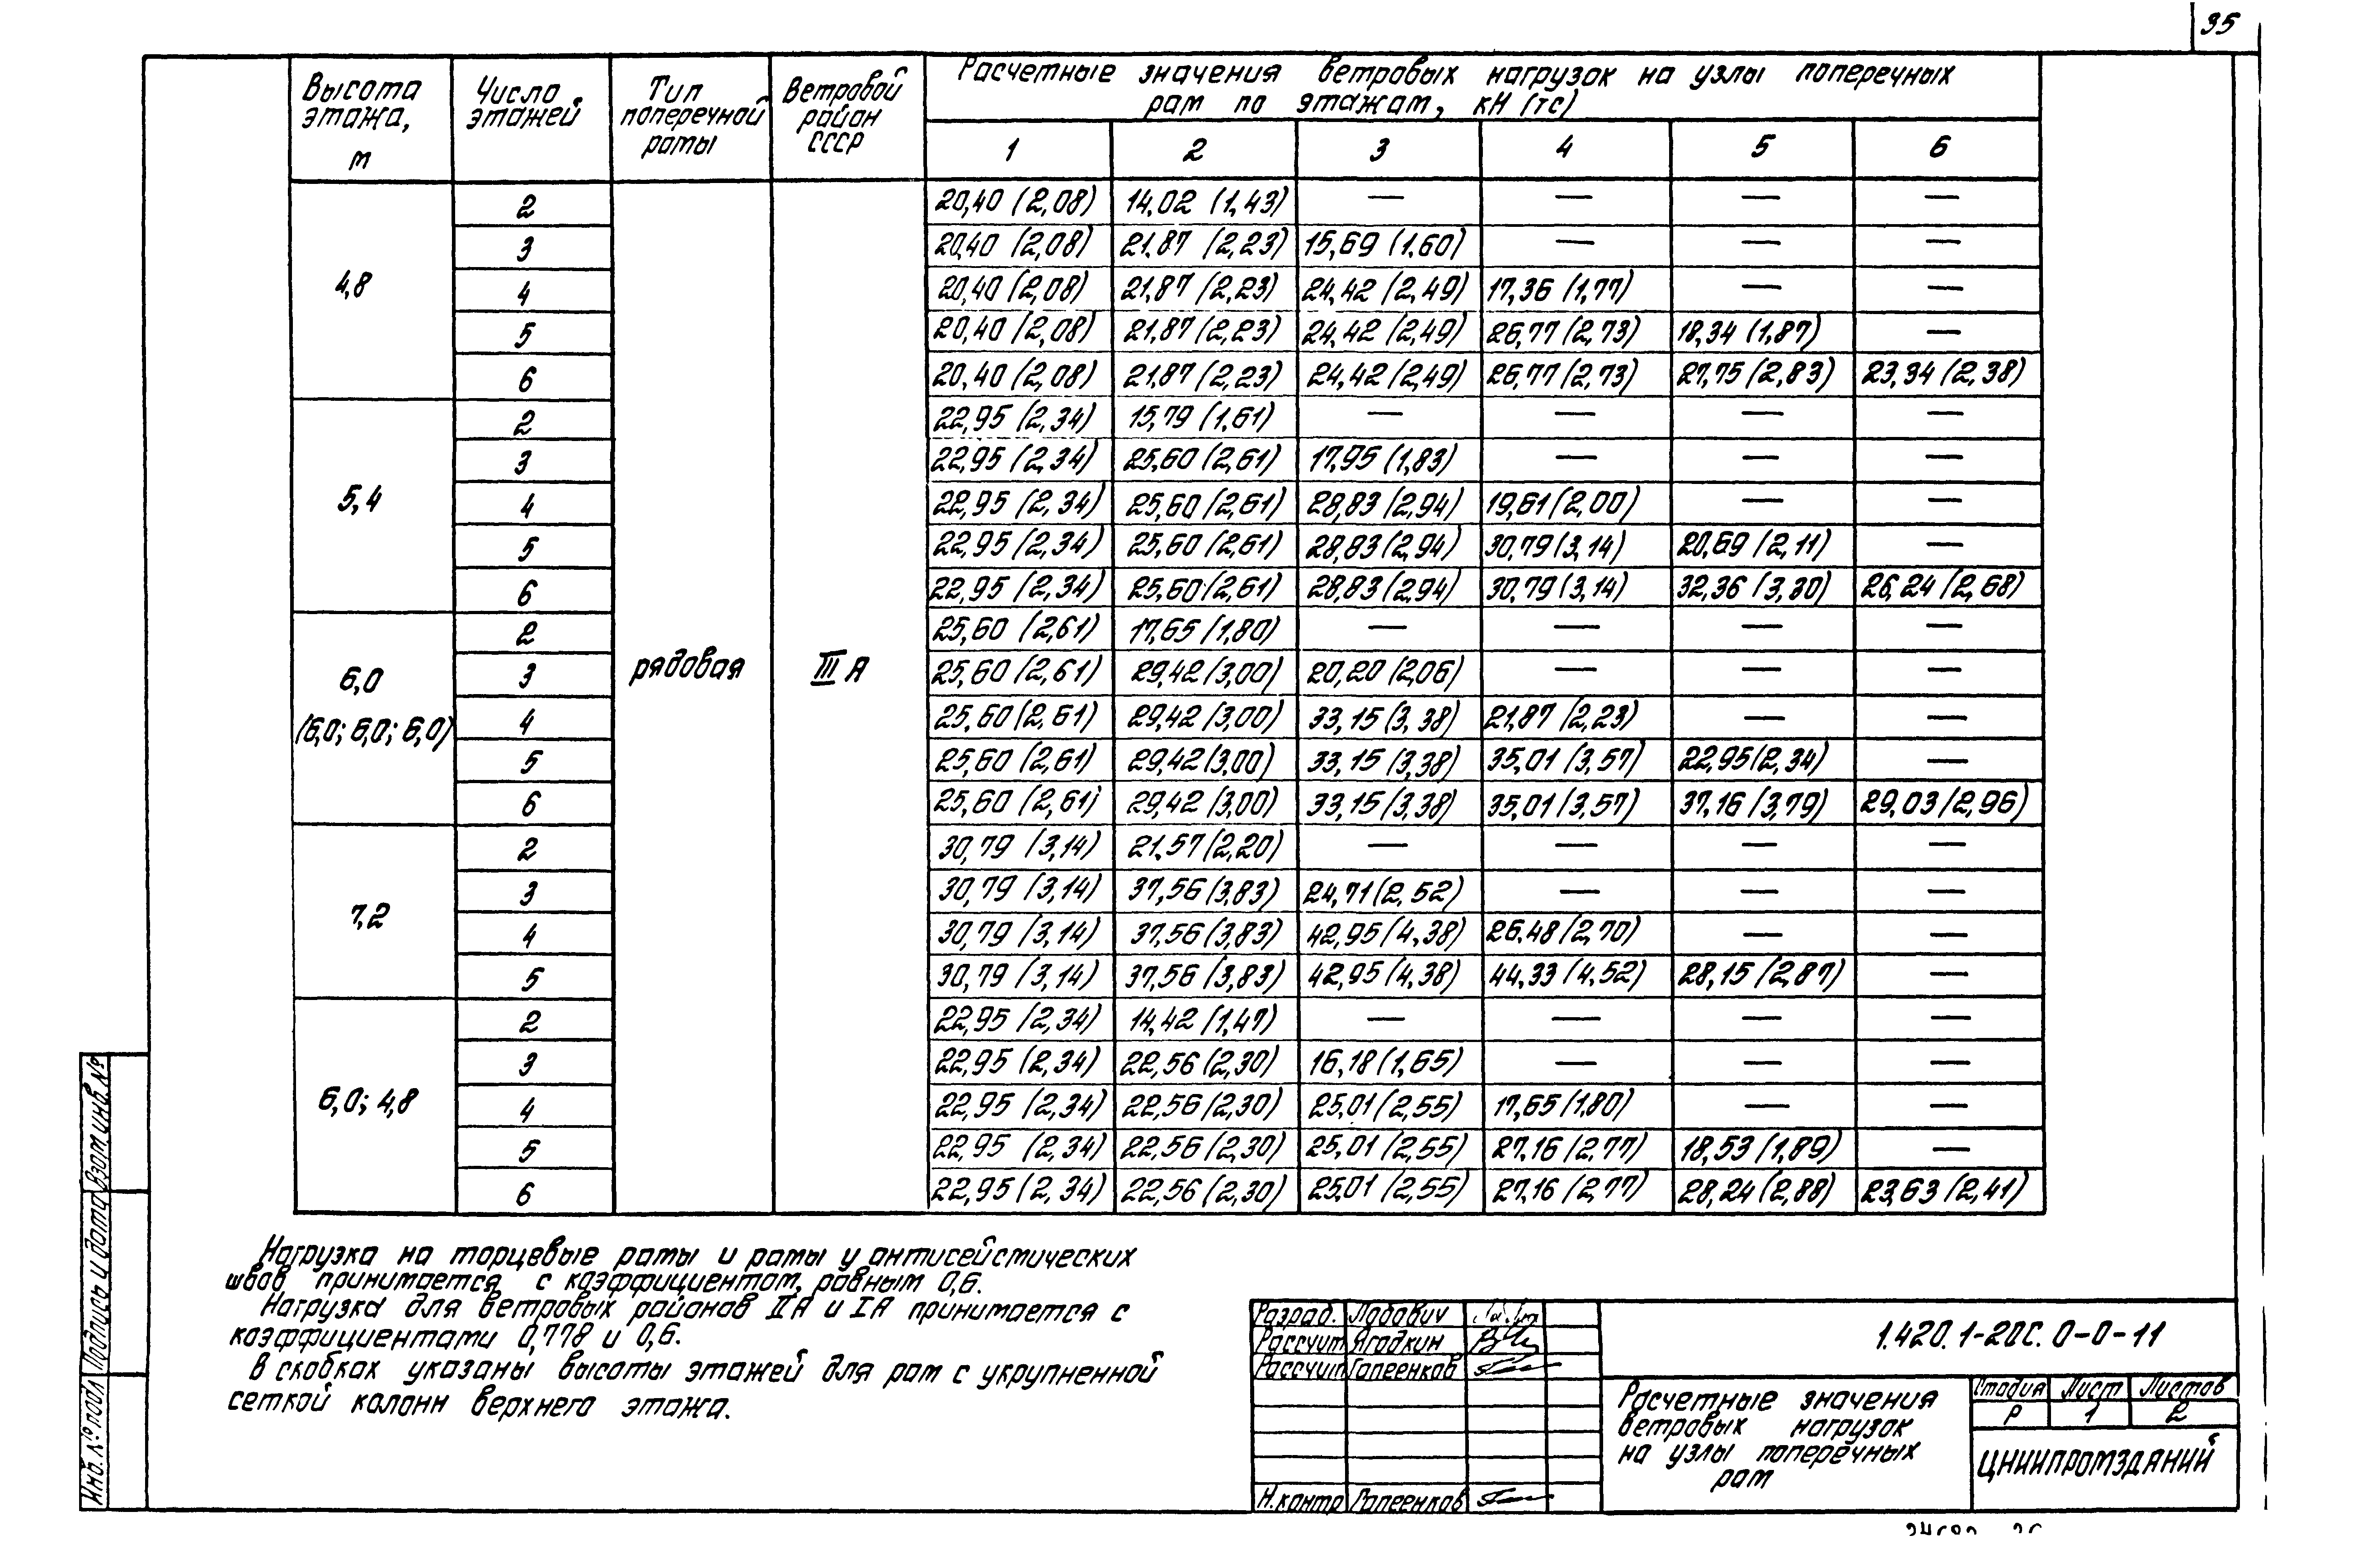 35
Высота этажа, м | Число этажей | Тип поперечной рамы | Ветровой район СССР | Расчетные значения ветровых нагрузок на узлы поперечных рам по этажам, кН (тс)
1 | 2 | 3 | 4 | 5 | 6
4,8 | рядовая | III А
2 | 20,40 (2,08) | 14,02 (1,43) | — | — | — | —
3 | 20,40 (2,08) | 21,87 (2,23) | 15,69 (1,60) | — | — | —
4 | 20,40 (2,08) | 21,87 (2,23) | 24,42 (2,49) | 17,36 (1,77) | — | —
5 | 20,40 (2,08) | 21,87 (2,23) | 24,42 (2,49) | 26,77 (2,73) | 18,34 (1,87) | —
6 | 20,40 (2,08) | 21,87 (2,23) | 24,42 (2,49) | 26,77 (2,73) | 27,75 (2,83) | 23,34 (2,38)
5,4
2 | 22,95 (2,34) | 15,79 (1,61) | — | — | — | —
3 | 22,95 (2,34) | 25,60 (2,61) | 17,95 (1,83) | — | — | —
4 | 22,95 (2,34) | 25,60 (2,61) | 28,83 (2,94) | 19,61 (2,00) | — | —
5 | 22,95 (2,34) | 25,60 (2,61) | 28,83 (2,94) | 30,79 (3,14) | 20,69 (2,11) | —
6 | 22,95 (2,34) | 25,60 (2,61) | 28,83 (2,94) | 30,79 (3,14) | 32,36 (3,30) | 26,24 (2,68)
6,0
(6,0; 6,0; 6,0)
2 | 25,60 (2,61) | 17,65 (1,80) | — | — | — | —
3 | 25,60 (2,61) | 29,42 (3,00) | 20,20 (2,06) | — | — | —
4 | 25,60 (2,61) | 29,42 (3,00) | 33,15 (3,38) | 21,87 (2,23) | — | —
5 | 25,60 (2,61) | 29,42 (3,00) | 33,15 (3,38) | 35,01 (3,57) | 22,95 (2,34) | —
6 | 25,60 (2,61) | 29,42 (3,00) | 33,15 (3,38) | 35,01 (3,57) | 37,16 (3,79) | 29,03 (2,96)
7,2
2 | 30,79 (3,14) | 21,57 (2,20) | — | — | — | —
3 | 30,79 (3,14) | 37,56 (3,83) | 24,71 (2,52) | — | — | —
4 | 30,79 (3,14) | 37,56 (3,83) | 42,95 (4,38) | 26,48 (2,70) | — | —
5 | 30,79 (3,14) | 37,56 (3,83) | 42,95 (4,38) | 44,33 (4,52) | 28,15 (2,87) | —
6,0; 4,8
2 | 22,95 (2,34) | 14,42 (1,47) | — | — | — | —
3 | 22,95 (2,34) | 22,56 (2,30) | 16,18 (1,65) | — | — | —
4 | 22,95 (2,34) | 22,56 (2,30) | 25,01 (2,55) | 17,65 (1,80) | — | —
5 | 22,95 (2,34) | 22,56 (2,30) | 25,01 (2,55) | 27,16 (2,77) | 18,53 (1,89) | —
6 | 22,95 (2,34) | 22,56 (2,30) | 25,01 (2,55) | 27,16 (2,77) | 28,24 (2,88) | 23,63 (2,41)
Нагрузка на торцевые рамы и рамы у антисейсмических
швов принимается с коэффициентом, равным 0,6.
Нагрузка для ветровых районов IIА и IА принимается с
коэффициентами 0,778 и 0,6.
В скобках указаны высоты этажей для рам с укрупненной
сеткой колонн верхнего этажа.
Взам инв. №
Подпись и дата
Инв. № подл
Разраб. Лабович
Рассчит Ягодкин
Рассчит Гапеенков
Н. контр Гапеенков
1.420.1-20С. 0-0-11
Расчетные значения
ветровых нагрузок
на узлы поперечных
рам
Стадия | Лист | Листов
Р | 1 | 2
ЦНИИПРОМЗДАНИЙ